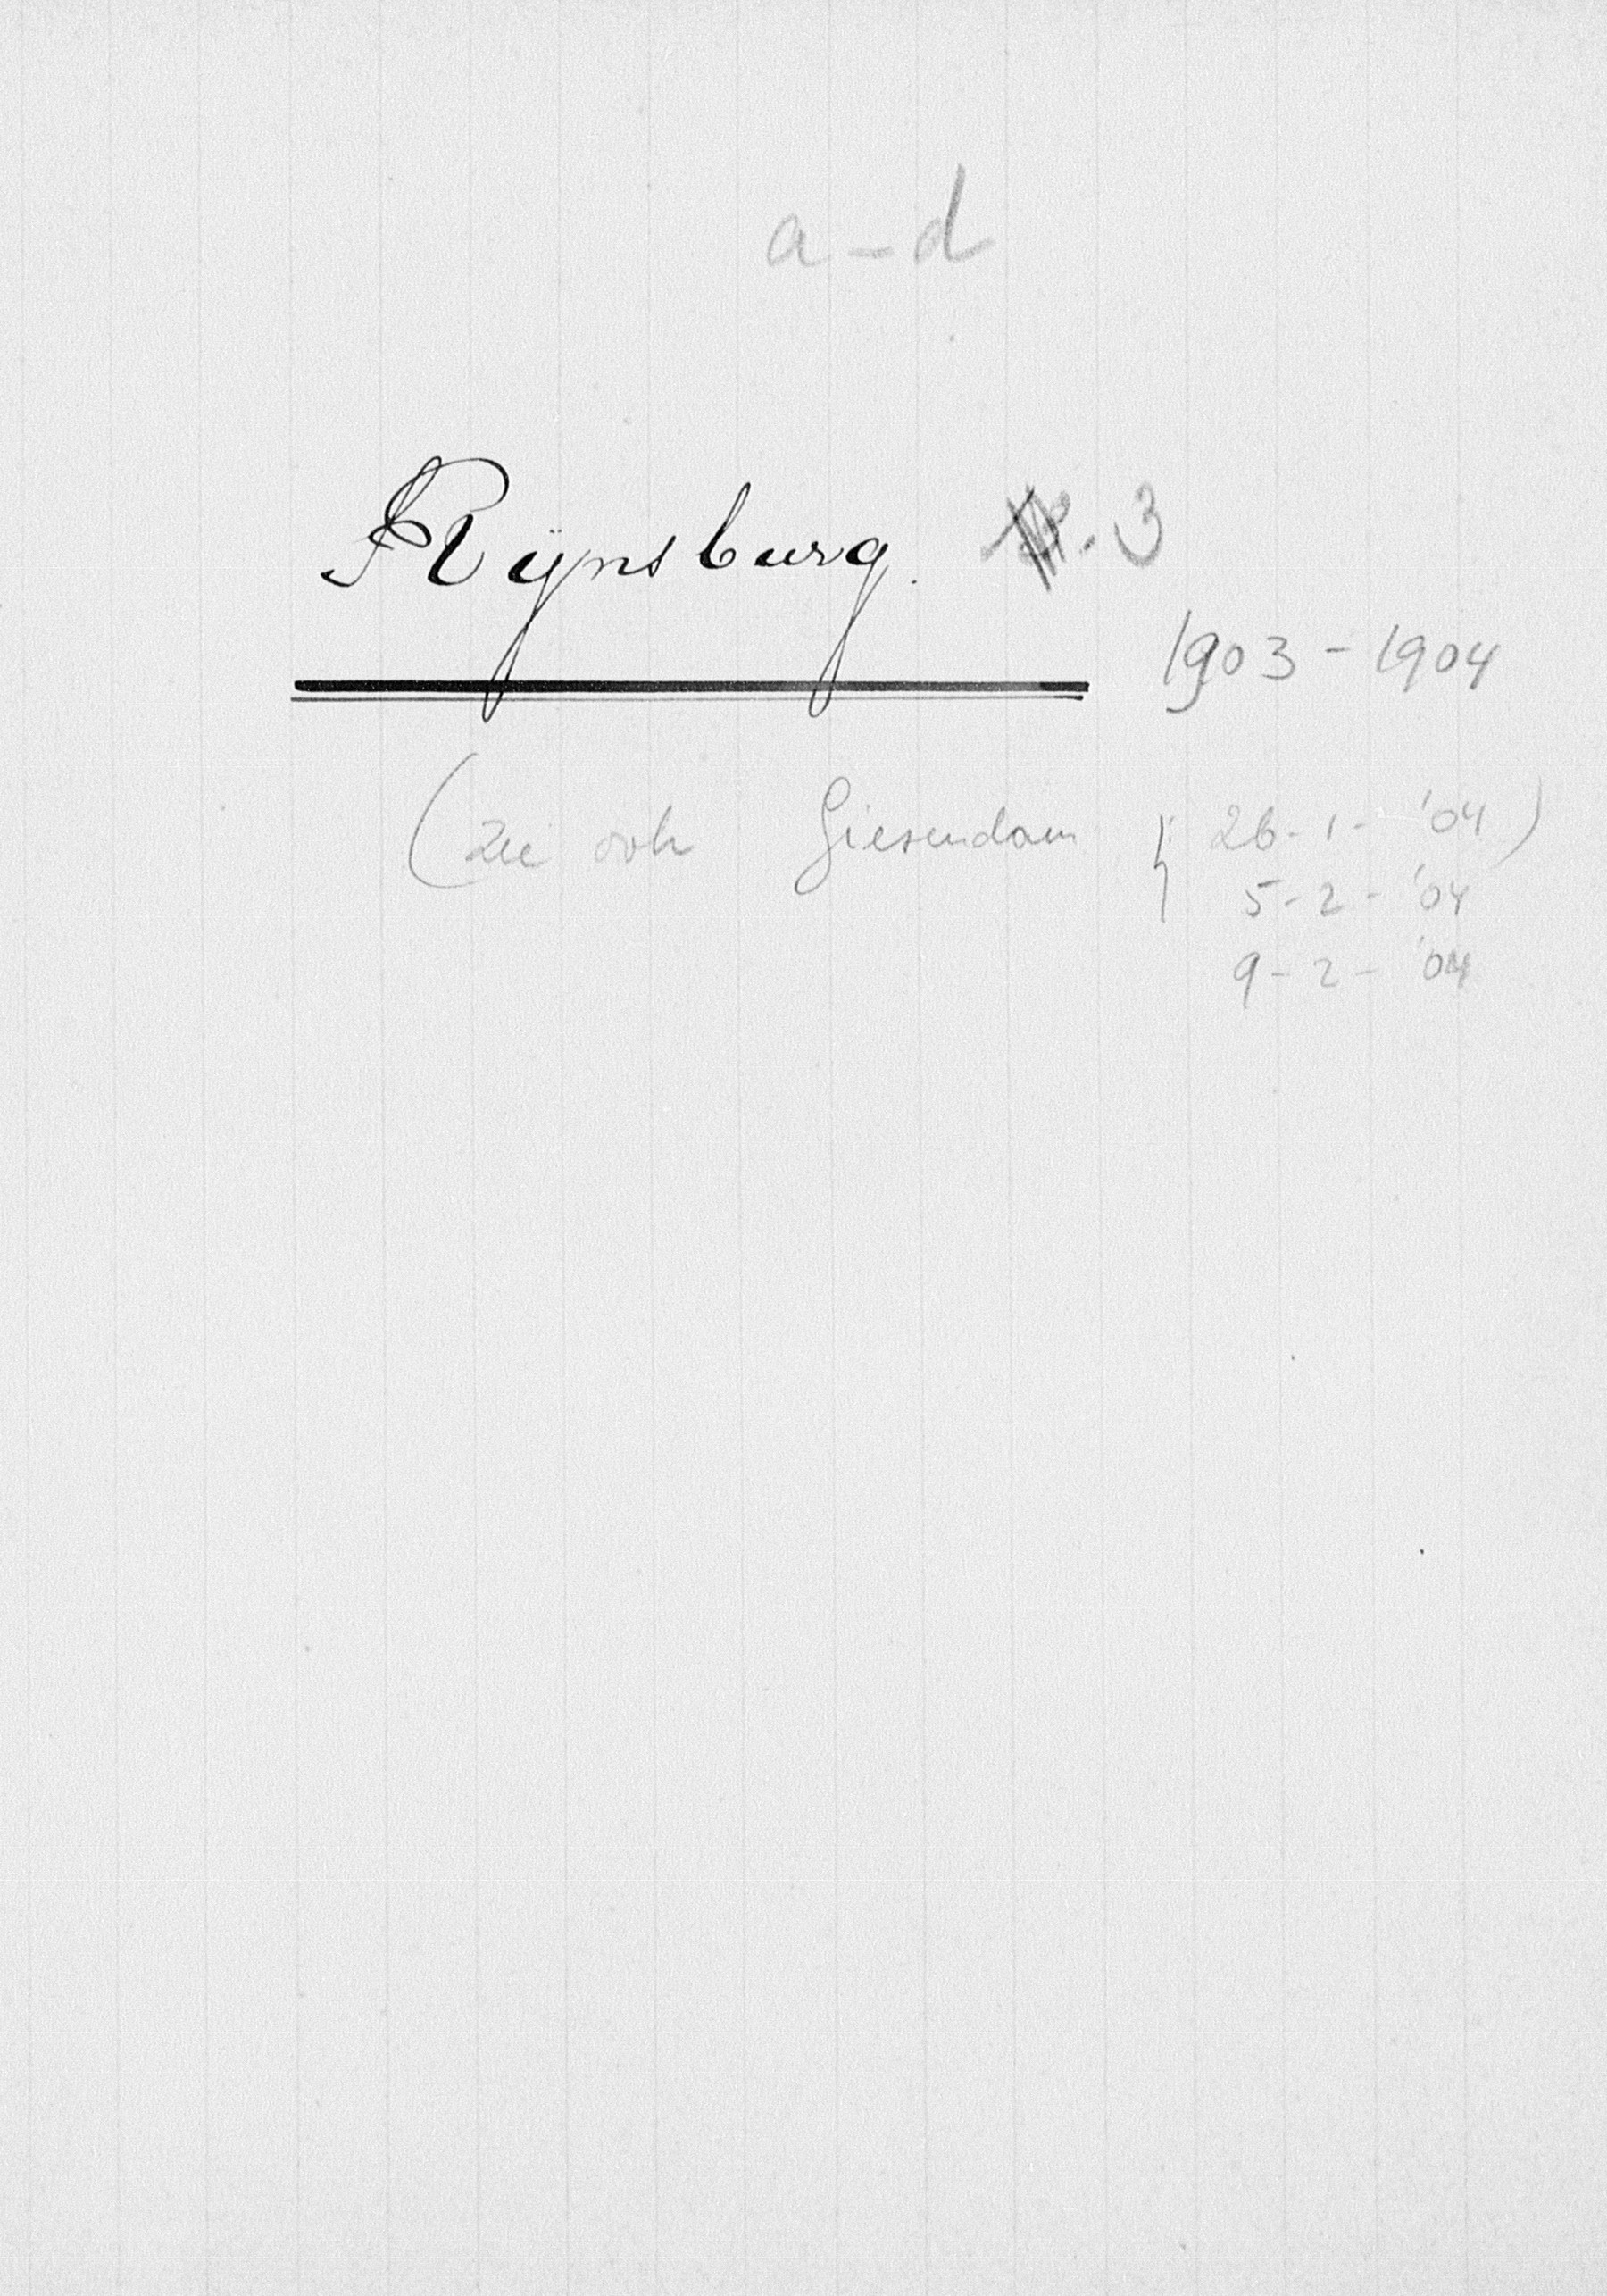 a-d
Rÿnsburg. 3
1903 - 1904
(zie ook Giesendam { 26-1-'04)
5-2-'04
9-2-'04